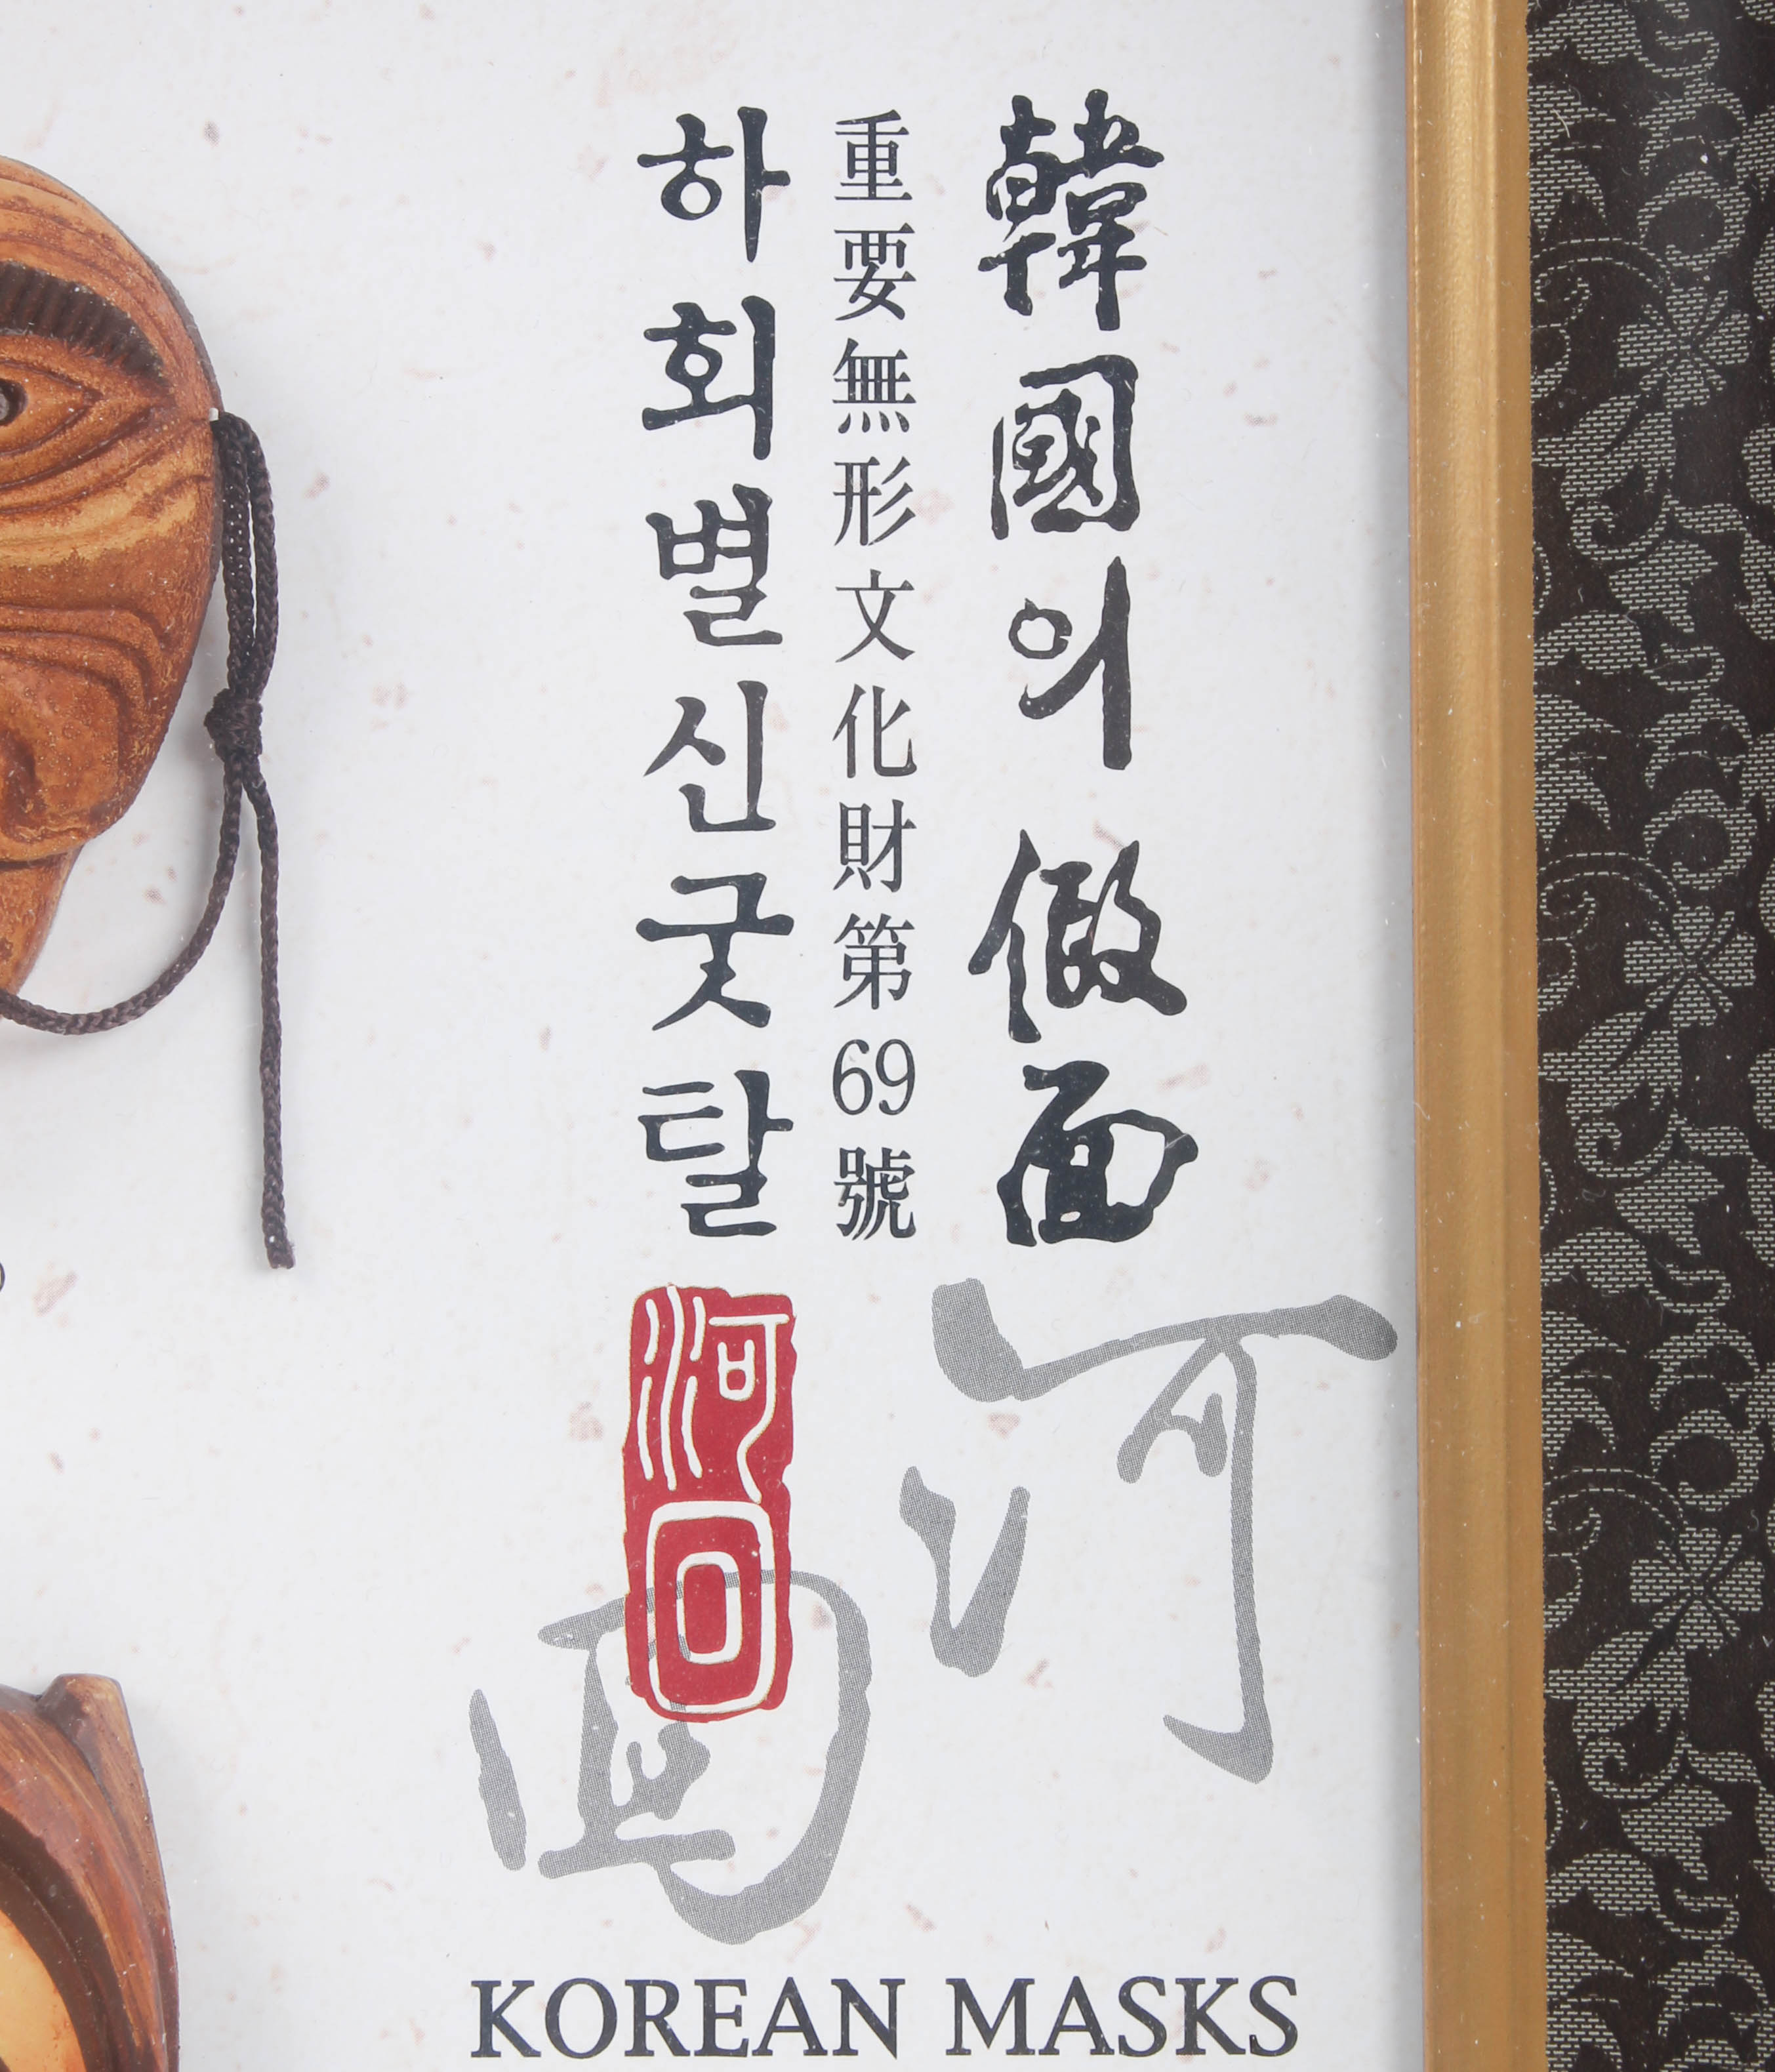 韓國의 假面
重要無形文化財第69號
하회별신굿탈
河回
河回
KOREAN MASKS